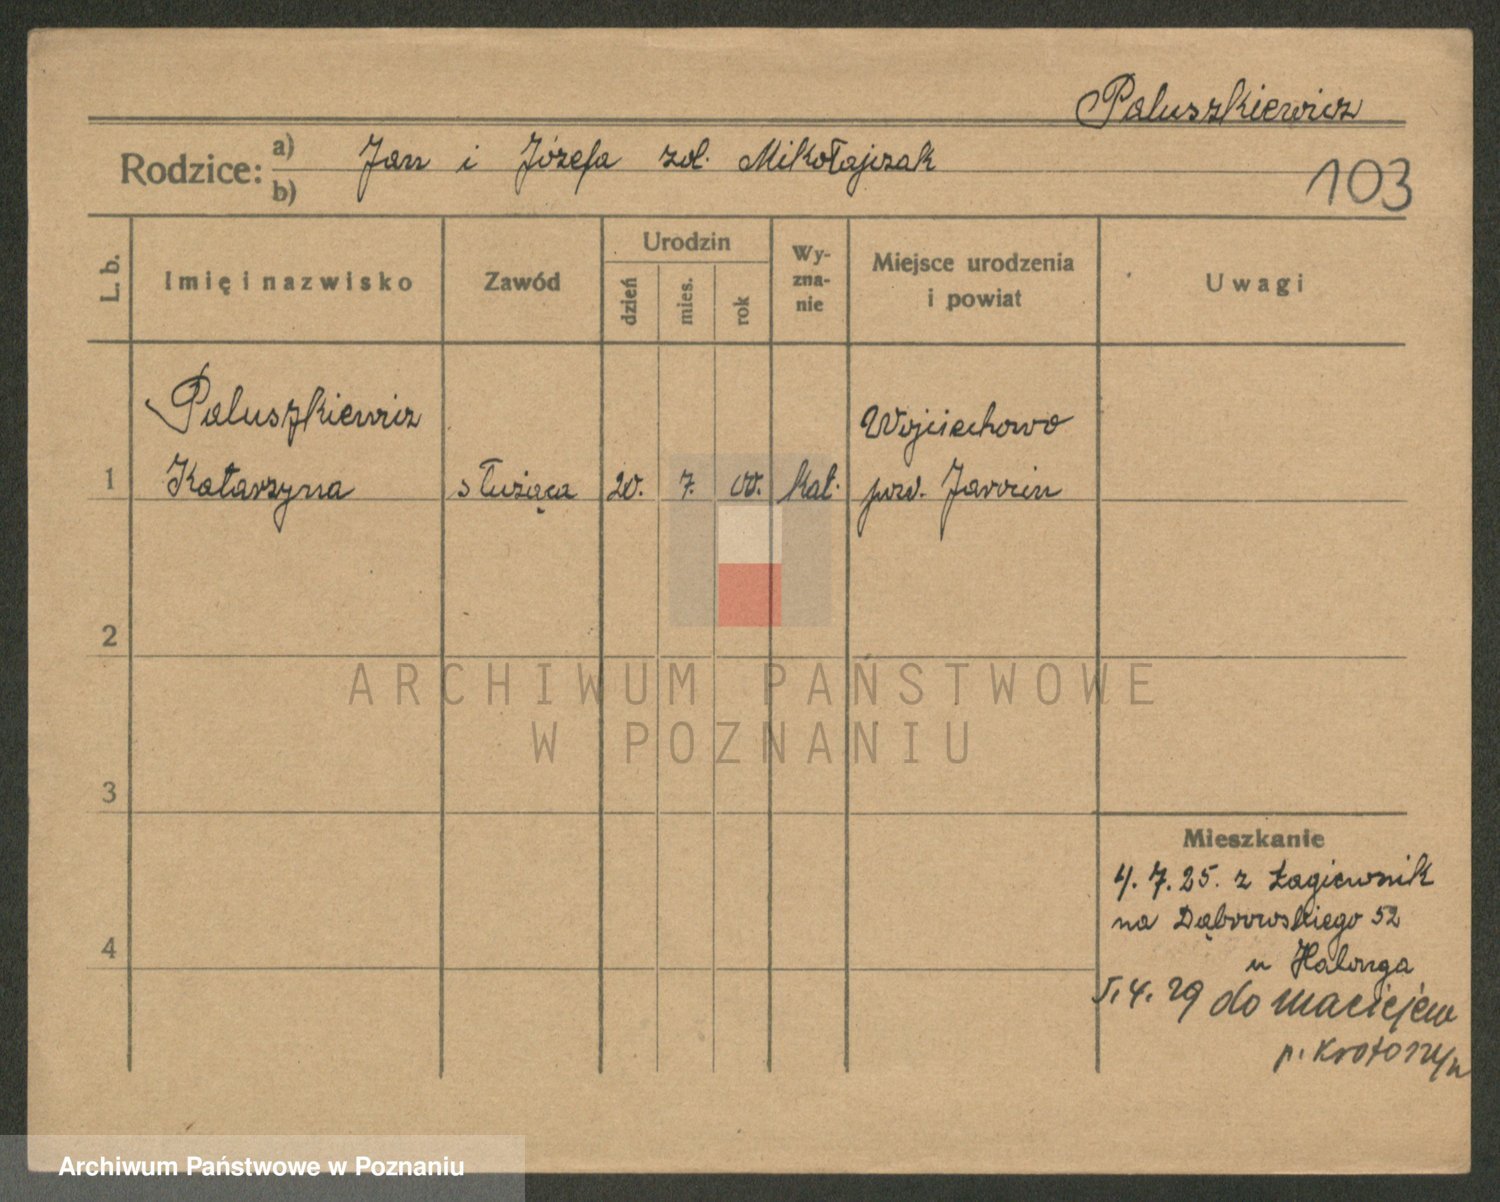 Paluszkiewicz
Rodzice: a) Jan i Józefa zol. Mikołajczak
b)
103
L. b.
Imię i nazwisko
Zawód
Urodzin
dzień
mies.
rok
Wy-
zna-
nie
Miejsce urodzenia
i powiat
Uwagi
Paluszkiewicz
Wojciechowo
1 Katarzyna służąca 20. 7. 00. kat. pow. Jarocin
2
ARCHIWUM PAŃSTWOWE
W POZNANIU
3
Mieszkanie
4. 7. 25. z Łagiewnik
na Dąbrowskiego 52
4
u
5. 4. 29 do Maciejew
p. Krotoszyn
Archiwum Państwowe w Poznaniu